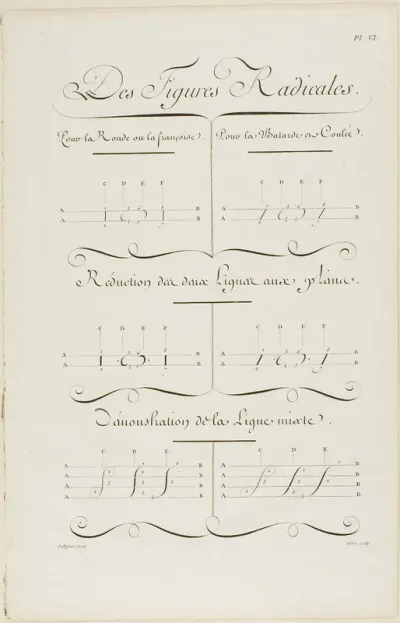 Pl. VI.
Des Figures Radicales.
Pour la Ronde ou la françoise. Pour la Batarde et Coulée.
C D E F C D E F
A B A B
A B A B
Réduction des deux Lignes aux pleins.
C D E F C D E F
A B A B
A B A B
Démonstration de la Ligne mixte.
C D E C D E
A B A B
A B A B
A B A B
A B A B